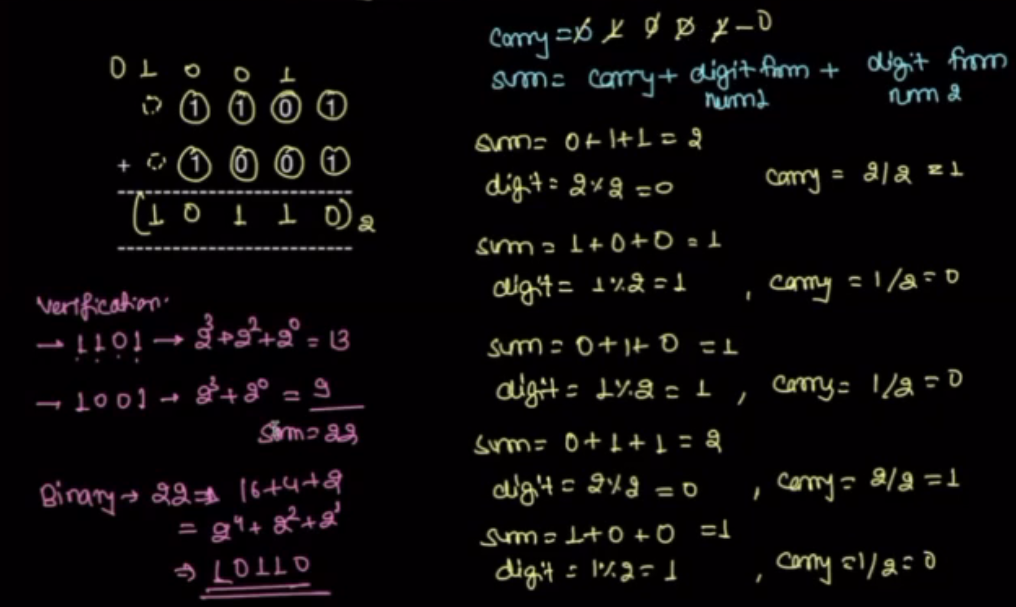 0 1 0 0 1
0 1 1 0 1
+ 0 1 0 0 1
(1 0 1 1 0)₂
Verification:
→ 1101 → 2³+2²+2⁰ = 13
→ 1001 → 2³+2⁰ = 9
Sum = 22
Binary → 22 ⇒ 16+4+2
= 2⁴+2²+2¹
⇒ 10110
carry = 0 1 0 0 1 - 0
sum = carry + digit from num1 + digit from num 2
sum = 0+1+1 = 2
digit = 2%2 = 0 carry = 2/2 = 1
sum = 1+0+0 = 1
digit = 1%2 = 1 , carry = 1/2 = 0
sum = 0+1+0 = 1
digit = 1%2 = 1 , carry = 1/2 = 0
sum = 0+1+1 = 2
digit = 2%2 = 0 , carry = 2/2 = 1
sum = 1+0+0 = 1
digit = 1%2 = 1 , carry = 1/2 = 0